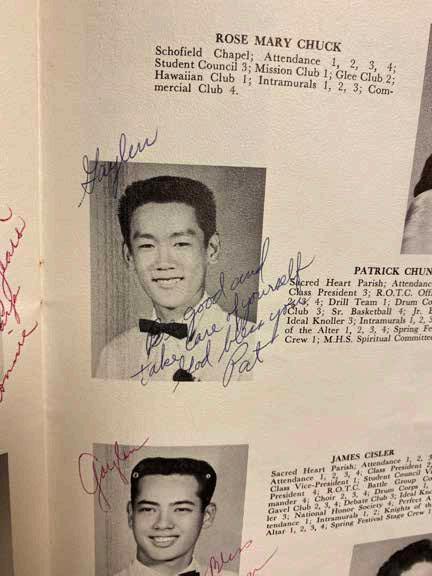 ROSE MARY CHUCK
Schofield Chapel; Attendance 1, 2, 3, 4;
Student Council 3; Mission Club 1; Glee Club 2;
Hawaiian Club 1; Intramurals 1, 2, 3; Com-
mercial Club 4.
Gaylen
Be good and
take care of yourself
God bless you
Pat
PATRICK CHUN
Sacred Heart Parish; Attendance
Class President 3; R.O.T.C. Offi
4; Drill Team 1; Drum Co
Club 3; Sr. Basketball 4; Jr. B
Ideal Knoller 3; Intramurals 1, 2,
of the Alter 1, 2, 3, 4; Spring Fes
Crew 1; M.H.S. Spiritual Committe
years
onnie
Gaylen
JAMES CISLER
Sacred Heart Parish; Attendance 1, 2, 3
Class Vice-President 1; Class President 2,
President 4; R.O.T.C. Battle Group Co
mander 4; Choir 2, 3, 4; Drum Corps 1,
Gavel Club 2, 3, 4; Debate Club 3; Ideal Kno
ler 3; National Honor Society 4; Perfect A
tendance 1; Intramurals 1, 2; Knights of the
Altar 1, 2, 3, 4; Spring Festival Stage Crew 1
Bless